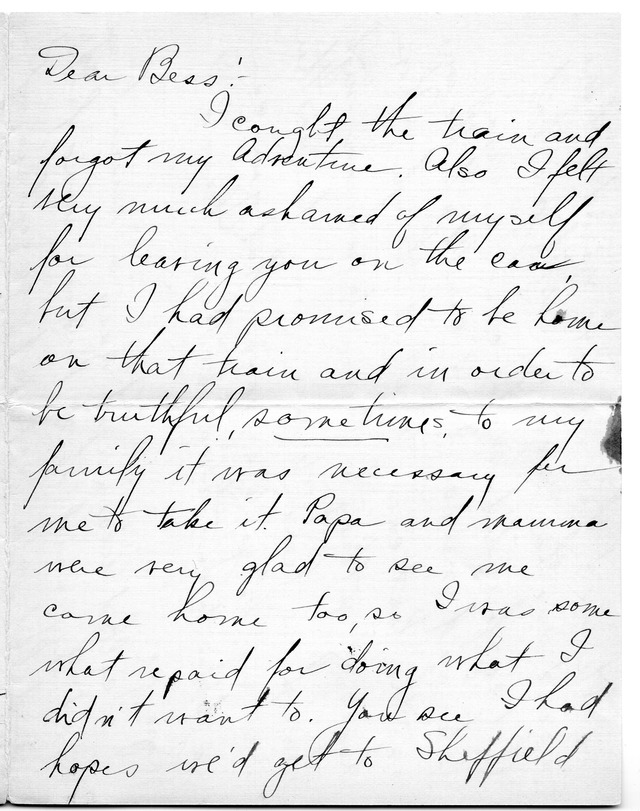 Dear Bess:-
I cought the train and
forgot my Adventure. Also I felt
very much ashamed of myself
for leaving you on the car,
but I had promised to be home
on that train and in order to
be truthful, sometimes, to my
family it was necessary for
me to take it. Papa and mamma
were very glad to see me
come home too, so I was some
what repaid for doing what I
didn't want to. You see I had
hopes we'd get to Sheffield